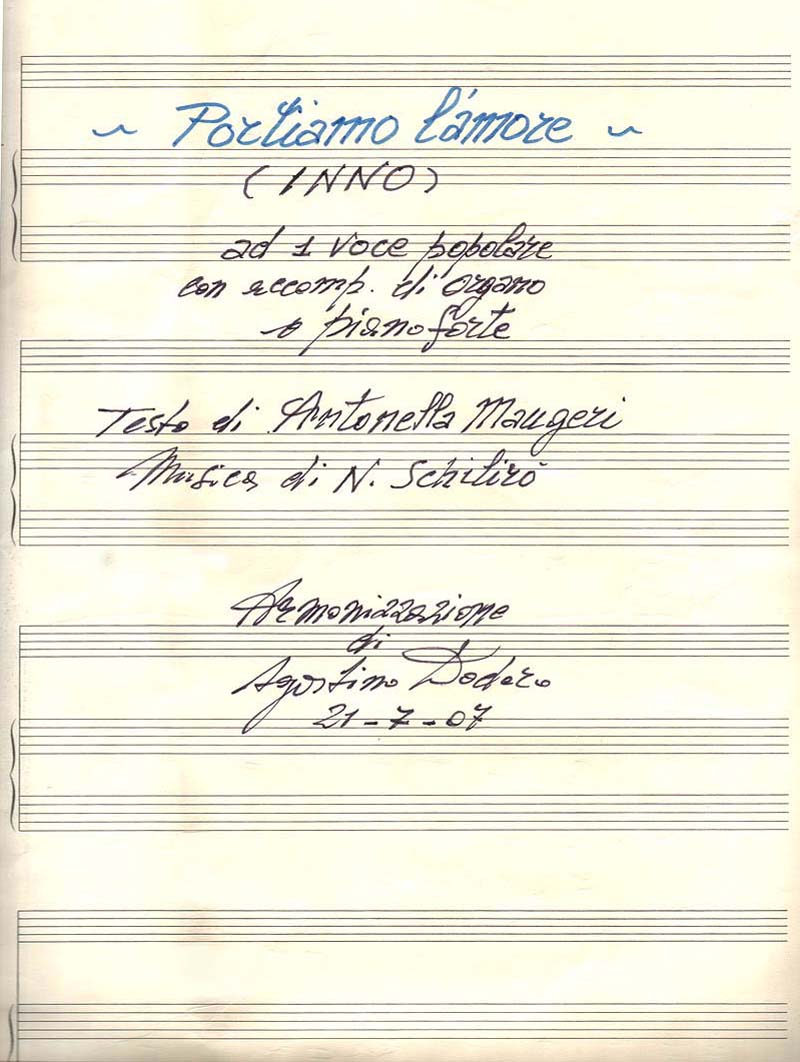 ~ Portiamo l'amore ~
(INNO)
ad 1 voce popolare
con accomp. di organo
o pianoforte
Testo di Antonella Maugeri
Musica di N. Schilirò
Armonizzazione
di
Agostino Dodero
21-7-07